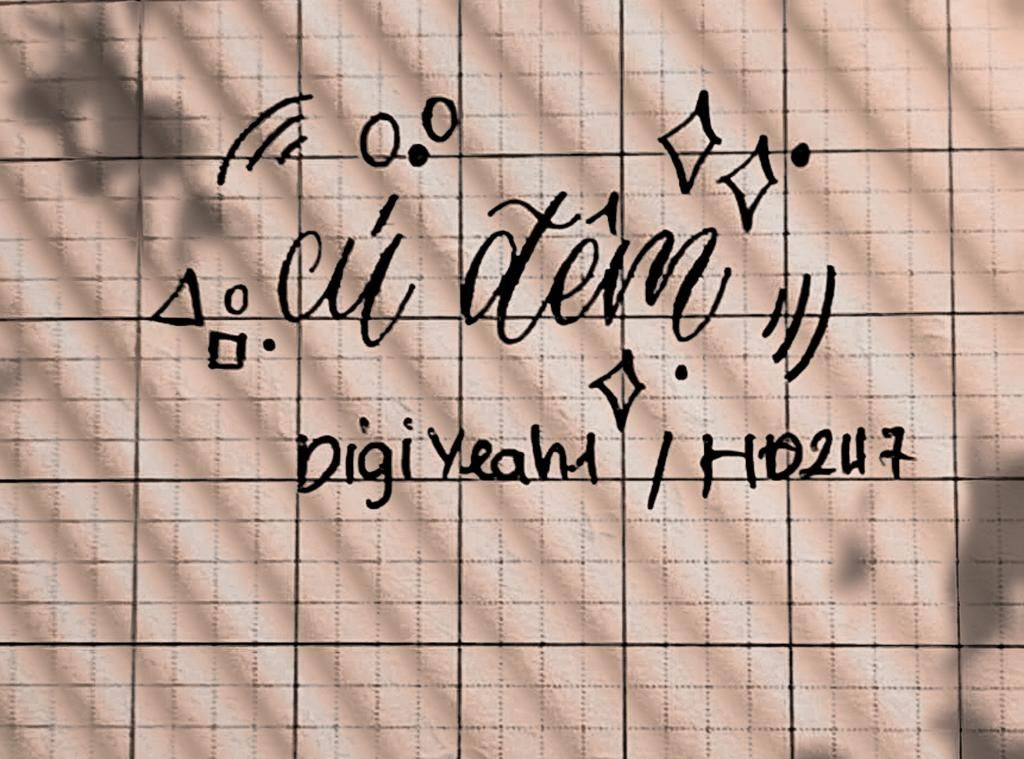 cú đêm
DigiYeah1 / HD247